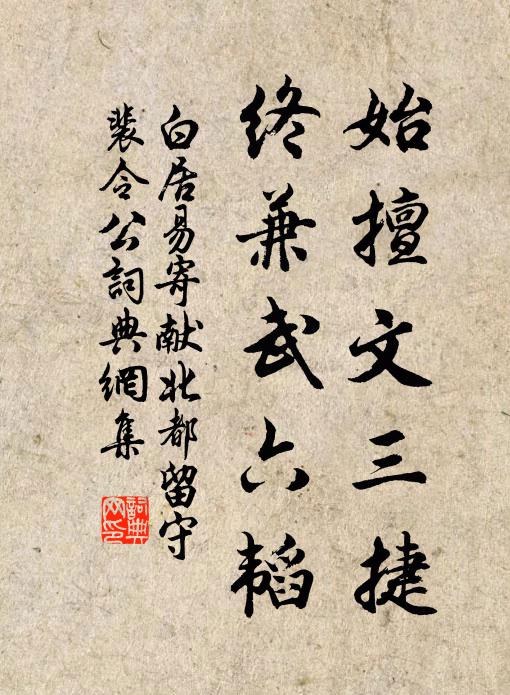 始擅文三捷
终兼武六韬
白居易寄献北都留守
裴令公詞典網集
詞典網印